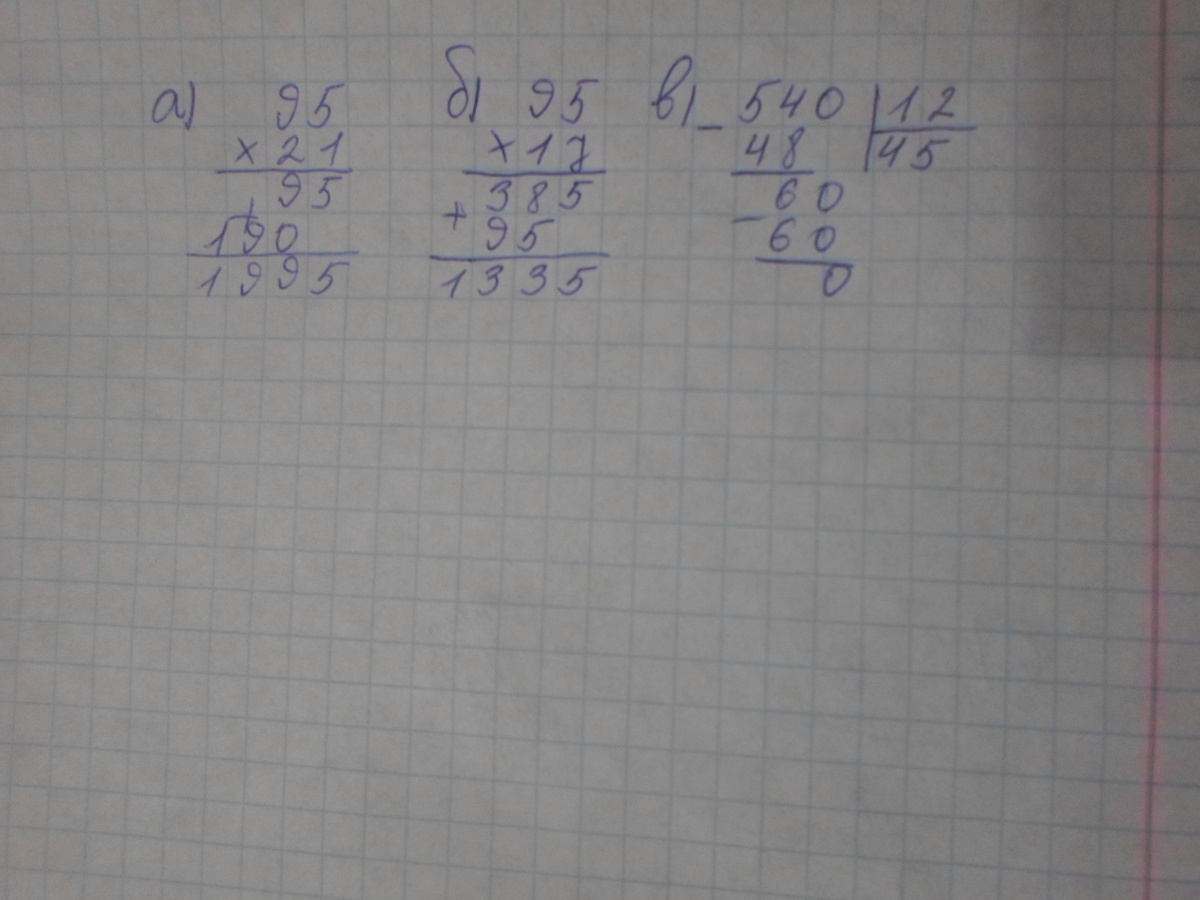 а) 95
× 21
95
+
190
1995
б) 95
× 17
385
+ 95
1335
в) - 540 | 12
48 | 45
60
- 60
0